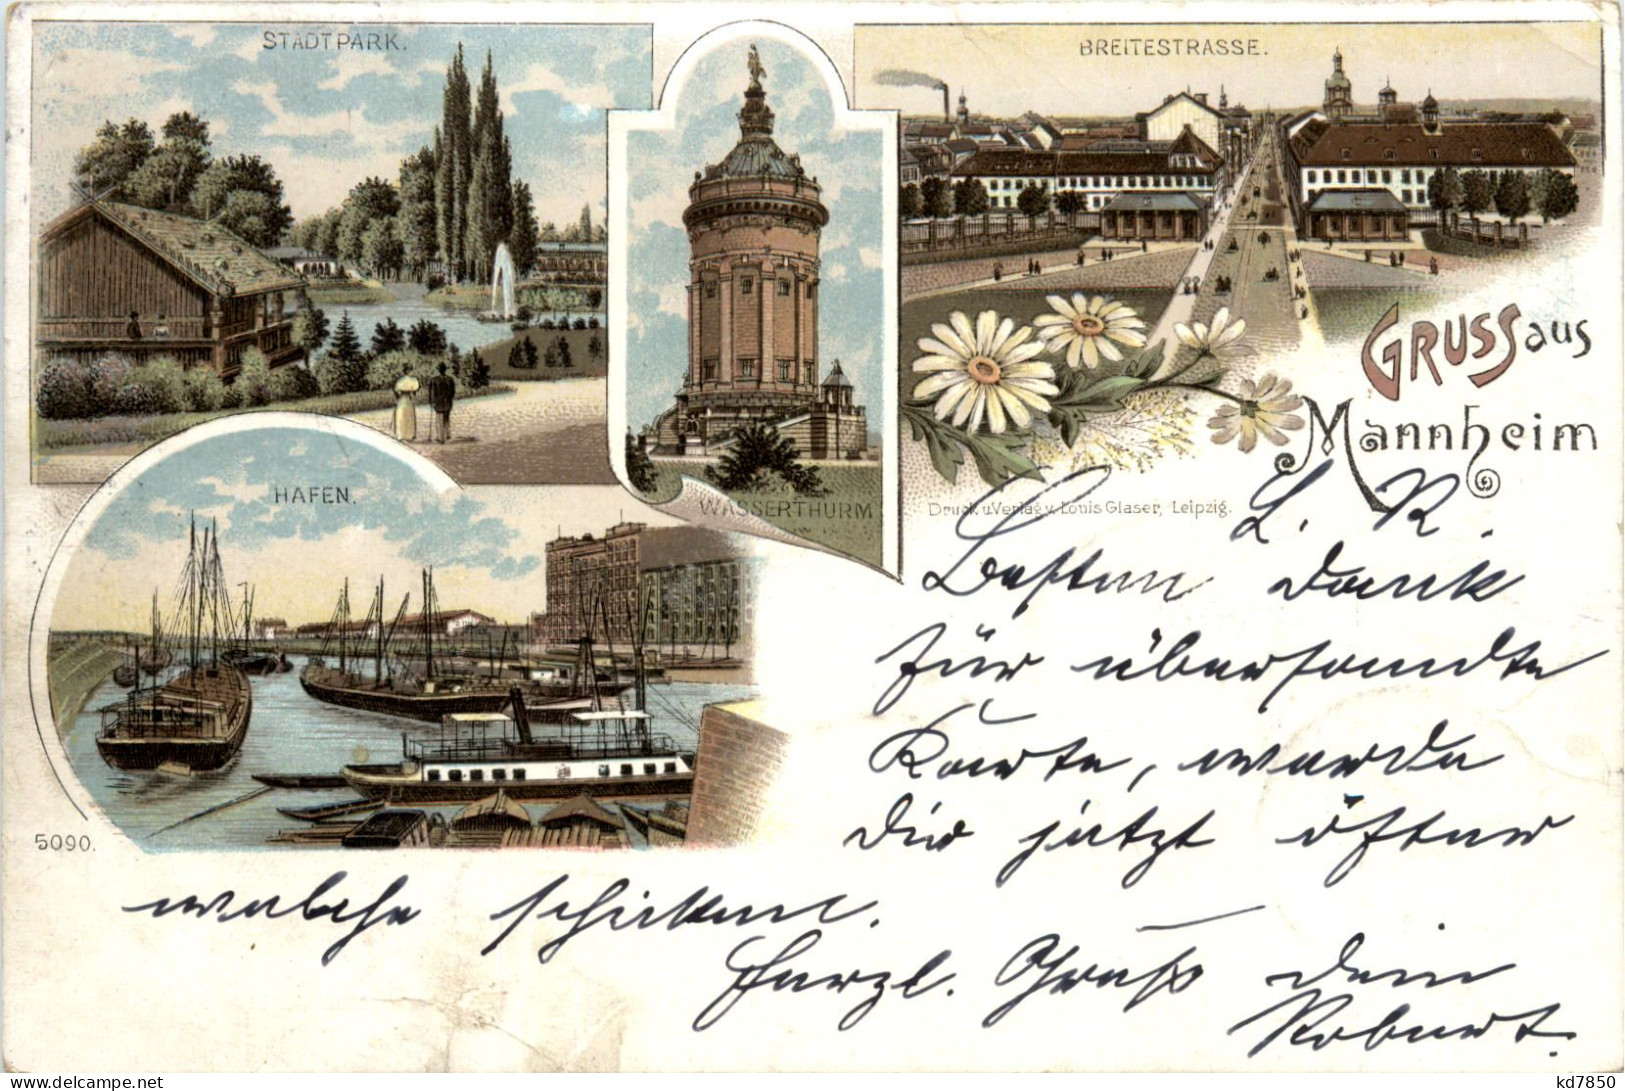 STADTPARK.
BREITESTRASSE.
GRUSS aus
Mannheim
WASSERTHURM
HAFEN.
Druck u. Verlag v. Louis Glaser, Leipzig.
5090.
L. R.
Besten Dank
für übersandte
Karte, werde
Dir jetzt öfter
welche schicken.
Herzl. Gruß Dein
Robert.
kd7850